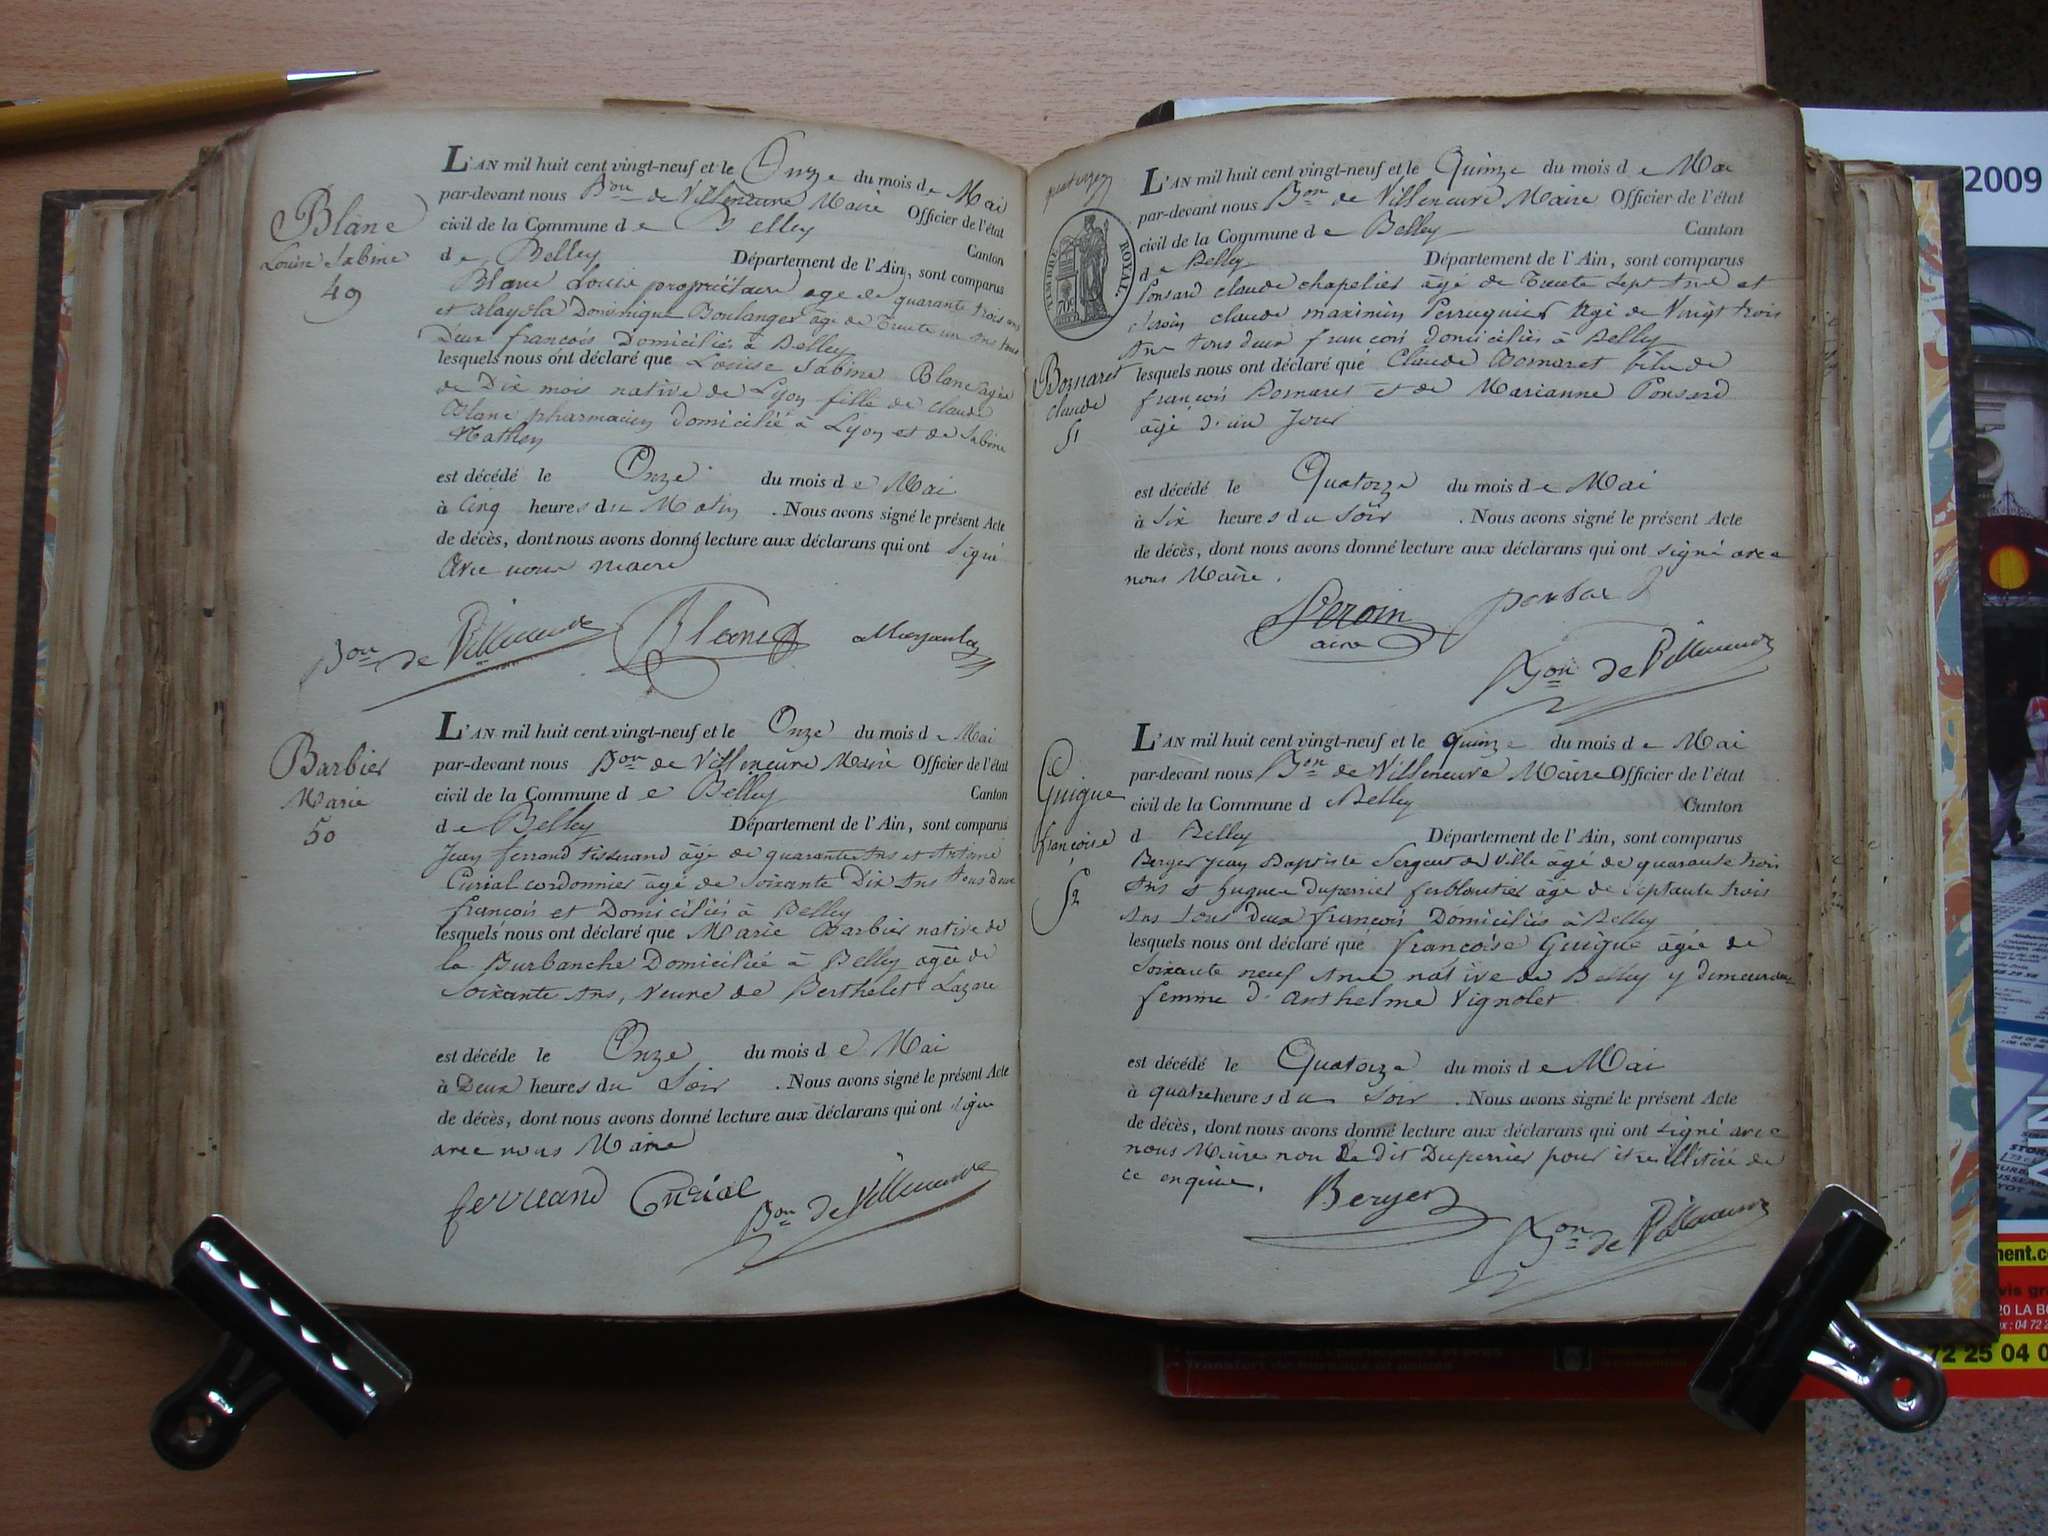 Blanc
Louise Sabine
49
L'AN mil huit cent vingt-neuf et le Onze du mois de Mai
par-devant nous Bon de Villeneuve Maire Officier de l'état
civil de la Commune de Belley Canton
de Belley Département de l'Ain, sont comparus
Blanc Louis propriétaire agé de quarante trois ans
et Dominique Boulanger âgé de Trente un ans tous
Deux françois Domiciliés à Belley
lesquels nous ont déclaré que Louise Sabine Blanc agée
de Dix mois native de Lyon fille de Claude
Blanc pharmacien domicilié à Lyon et de Sabine
est décédé le Onze du mois de Mai
à Cinq heures du Matin . Nous avons signé le présent Acte
de décès, dont nous avons donné lecture aux déclarans qui ont signé
avec nous maire
Bon de Villeneuve Blanc
Barbier
Marie
50
L'AN mil huit cent vingt-neuf et le Onze du mois de Mai
par-devant nous Bon de Villeneuve Maire Officier de l'état
civil de la Commune de Belley Canton
de Belley Département de l'Ain, sont comparus
Jean ferrand tisserand âgé de quarante Ans et Antoine
Curial cordonnier âgé de Soixante Dix Ans tous deux
françois et Domiciliés à Belley
lesquels nous ont déclaré que Marie Barbier native de
la Burbanche Domiciliée à Belley âgée de
Soixante Ans, Veuve de Berthelet Lazare
est décédé le Onze du mois de Mai
à Deux heures du Soir . Nous avons signé le présent Acte
de décès, dont nous avons donné lecture aux déclarans qui ont signé
avec nous Maire
ferrand Curial Bon de Villeneuve
TIMBRE ROYAL
Bornaret
Claude
51
L'AN mil huit cent vingt-neuf et le Quinze du mois de Mai
par-devant nous Bon de Villeneuve Maire Officier de l'état
civil de la Commune de Belley Canton
de Belley Département de l'Ain, sont comparus
Ponsard claude chapelier âgé de Trente Sept Ans et
claude maximin Perruquier Agé de Vingt trois
Ans tous deux françois domiciliés à Belley
lesquels nous ont déclaré que Claude Bornaret fils de
françois Bornaret et de Marianne Ponsard
âgé d'un Jour
est décédé le Quatorze du mois de Mai
à Six heures du Soir . Nous avons signé le présent Acte
de décès, dont nous avons donné lecture aux déclarans qui ont signé avec
nous Maire.
Bon de Villeneuve
Guigue
françoise
52
L'AN mil huit cent vingt-neuf et le quinze du mois de Mai
par-devant nous Bon de Villeneuve Maire Officier de l'état
civil de la Commune d Belley Canton
d Belley Département de l'Ain, sont comparus
Berger Jean Baptiste Sergent de Ville âgé de quarante trois
Ans et hugues Duperrier ferblantier âgé de Septante trois
Ans tous deux françois Domiciliés à Belley
lesquels nous ont déclaré que françoise Guigue âgée de
Soixante neuf Ans native de Belley y demeurant
femme d'Anthelme Vignolet
est décédé le Quatorze du mois de Mai
à quatre heures du Soir . Nous avons signé le présent Acte
de décès, dont nous avons donné lecture aux déclarans qui ont signé avec
nous Maire non Le dit Duperrier pour être illitiré de
ce enquis.
Berger
Bon de Villeneuve
2009
72 25 04 0